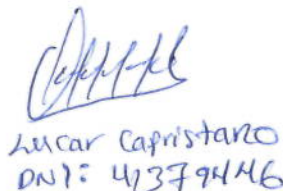 Lucar Capristano
DNI: 41379446